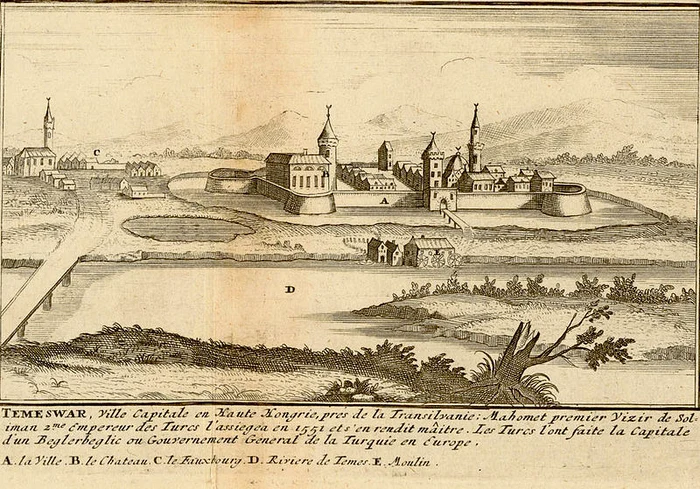 C
A
D
TEMESWAR, Ville Capitale en Haute Hongrie, pres de la Transilvanie: Mahomet premier Vizir de Sol-
iman 2me Empereur des Turcs l'assiegea en 1551 et s'en rendit màitre. Les Turcs l'ont faite la Capitale
d'un Beglerbeglic ou Gouvernement General de la Turquie en Europe.
A. la Ville. B. le Chateau. C. le Fauxbourg. D. Riviere de Temes. E. Moulin.